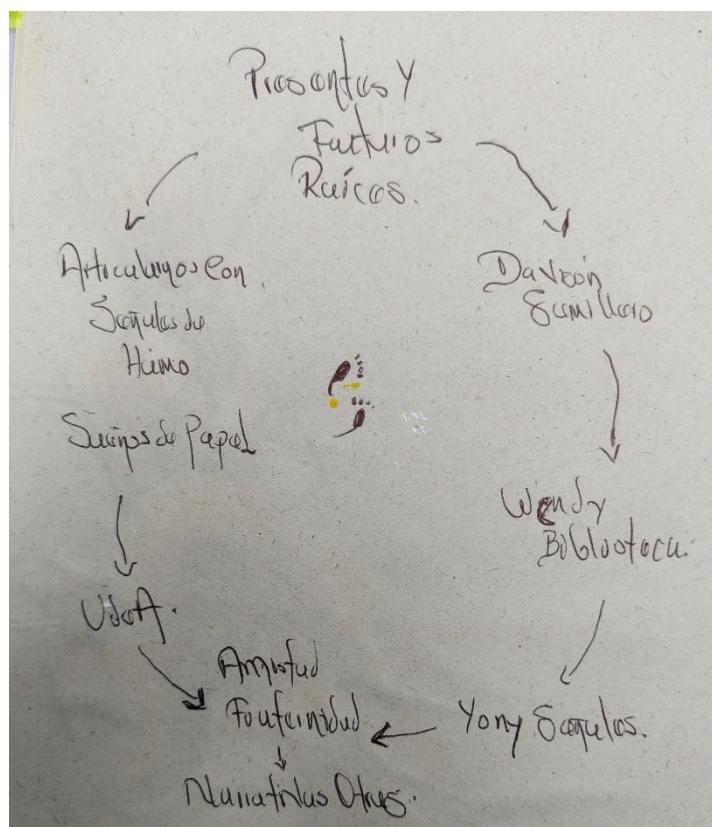 Presentes Y
Futuros
Raíces.
Articulamos Con
Señales de
Humo
Sueños de Papel
UdeA.
Davison
Semillero
Wendy
Biblioteca.
Yony Señales.
Amistad
Fraternidad
Narrativas Otras.